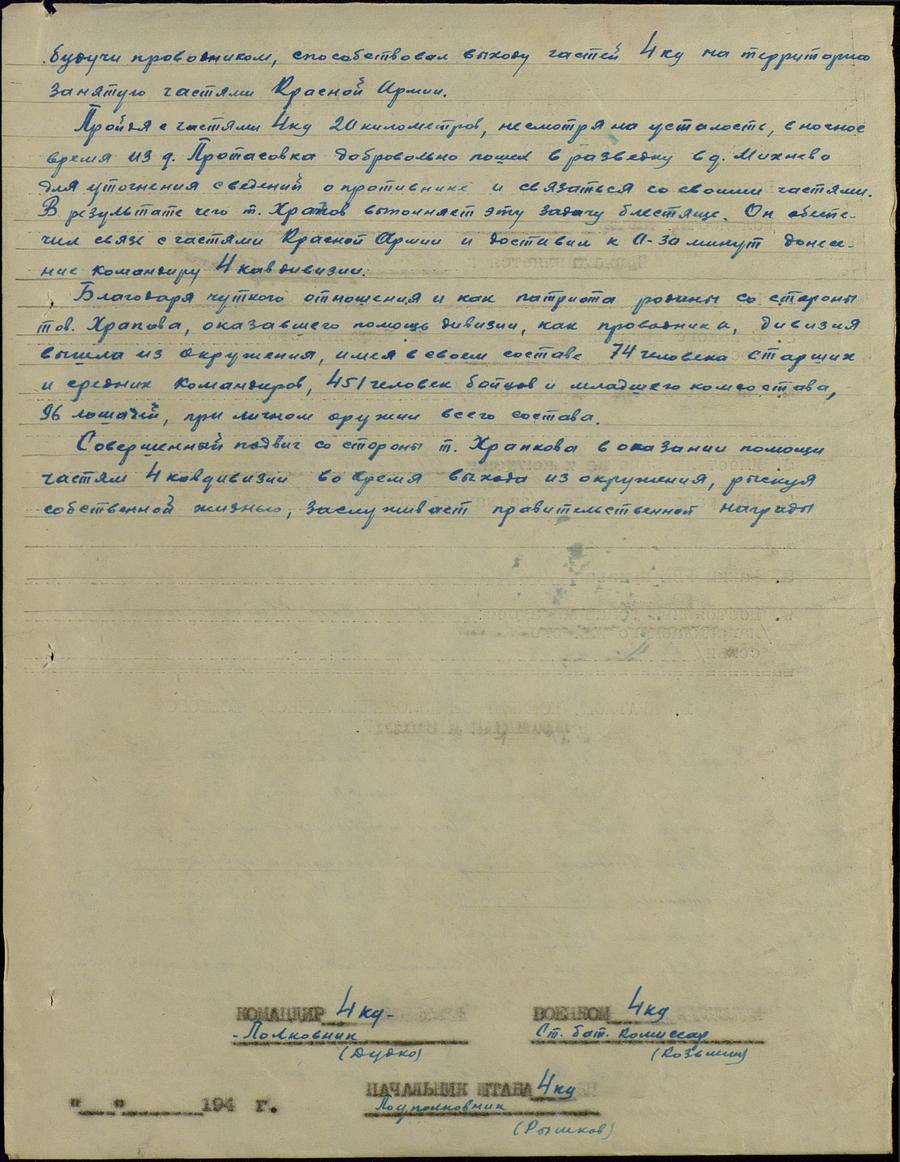 будучи проводником, способствовал выходу частей 4 кд на территорию
занятую частями Красной Армии.
Пройдя с частями 4кд 20 километров, несмотря на усталость, в ночное
время из д. Протасовка добровольно пошел в разведку в д. Михнево
для уточнения сведений о противнике и связаться со своими частями.
В результате чего т. Храпов выполняет эту задачу блестяще. Он обеспе-
чил связь с частями Красной Армии и доставил к минут донесе-
ние командиру 4 кавдивизии.
Благодаря чуткого отношения и как патриота родины со стороны
тов. Храпова, оказавшего помощь дивизии, как проводника, дивизия
вышла из окружения, имея в своем составе 74 человека старших
и средних командиров, 451 человек бойцов и младшего комсостава,
96 лошадей, при личном оружии всего состава.
Совершенный подвиг со стороны т. Храпкова в оказании помощи
частям 4 кавдивизии во время выхода из окружения, рискуя
собственной жизнью, заслуживает правительственной награды
КОМАНДИР 4 кд-
ВОЕНКОМ 4кд
-Полковник
Ст. бат. Комиссар
(Дудко)
НАЧАЛЬНИК ШТАБА 4кд
"___"______194 г.
Подполковник
(Рышков)